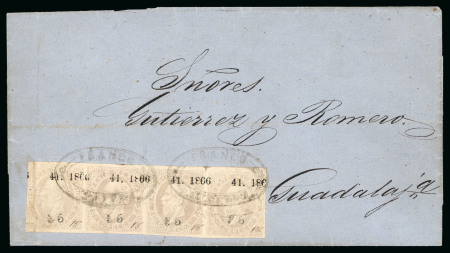 Sñores.
Gutierrez y Romero.
Guadalajª
41. 1866 41. 1866 41. 1866 41. 186
FRANCO